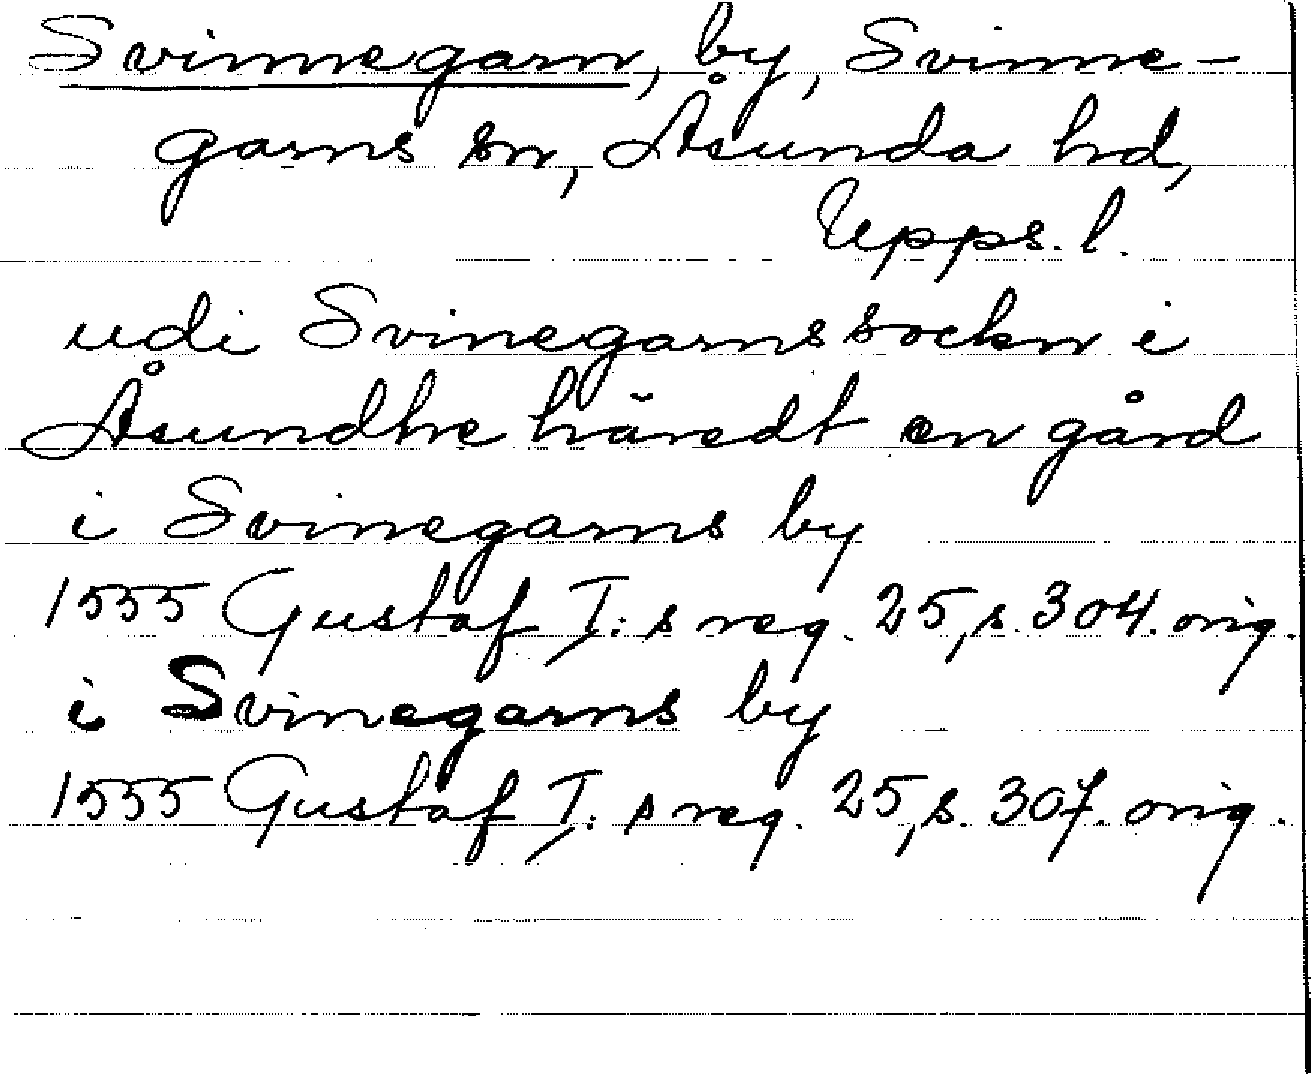 Svinnegarn, by, Svinne-
garns sn, Åsunda hd,
Upps. l.
udi Svinegarns sockn i
Åsundhe häredt en gård
i Svinegarns by
1555 Gustaf I:s reg. 25, s. 304. orig.
i Svinegarns by
1555 Gustaf I:s reg. 25, s. 307. orig.